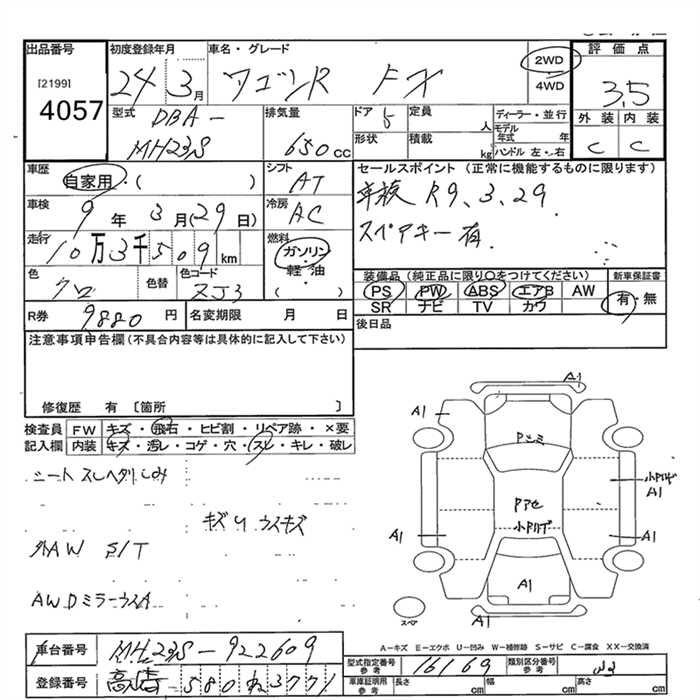 出品番号
[2199]
4057
初度登録年月
24 3月
車名・グレード
ワゴンR FX
2WD
4WD
評価点
3.5
外装 内装
C C
型式
DBA-
MH23S
排気量
650cc
ドア 5
定員 人
形状
積載 kg
ディーラー・並行
モデル年式 年
ハンドル 左・右
車歴
自家用・( )
シフト
AT
セールスポイント (正常に機能するものに限ります)
車検 R9.3.29
スペアキー有.
車検
9年 3月(29日)
冷房
AC
走行
10万3千509km
燃料
ガソリン
・
軽油
( )
色
クロ
色替
色コード
ZJ3
装備品 (純正品に限り○をつけてください)
PS PW ABS エアB AW
SR ナビ TV カワ
新車保証書
有・無
R券
9880円
名変期限 月 日
後日品
注意事項申告欄(不具合内容等は具体的に記入して下さい)
修復歴 有 [箇所 ]
検査員 FW キズ・飛石・ヒビ割・リペア跡・×要
記入欄 内装 キズ・汚レ・コゲ・穴・スレ・キレ・破レ
シートスレヘタリしみ
キズU ウスキズ
外AW S/T
AWDミラーウスA
A1
A1
Pシミ
小Pリサビ
A1
Pアセ
小Pリサビ
A1
A1
A1
スペア
A-キズ E-エクボ U-凹み W-補修跡 S-サビ C-腐食 XX-交換済
車台番号
MH23S-922609
登録番号
580 3771
型式指定番号
参考
16169
類別区分番号
参考
車庫証明用
参考
長さ cm
幅 cm
高さ cm